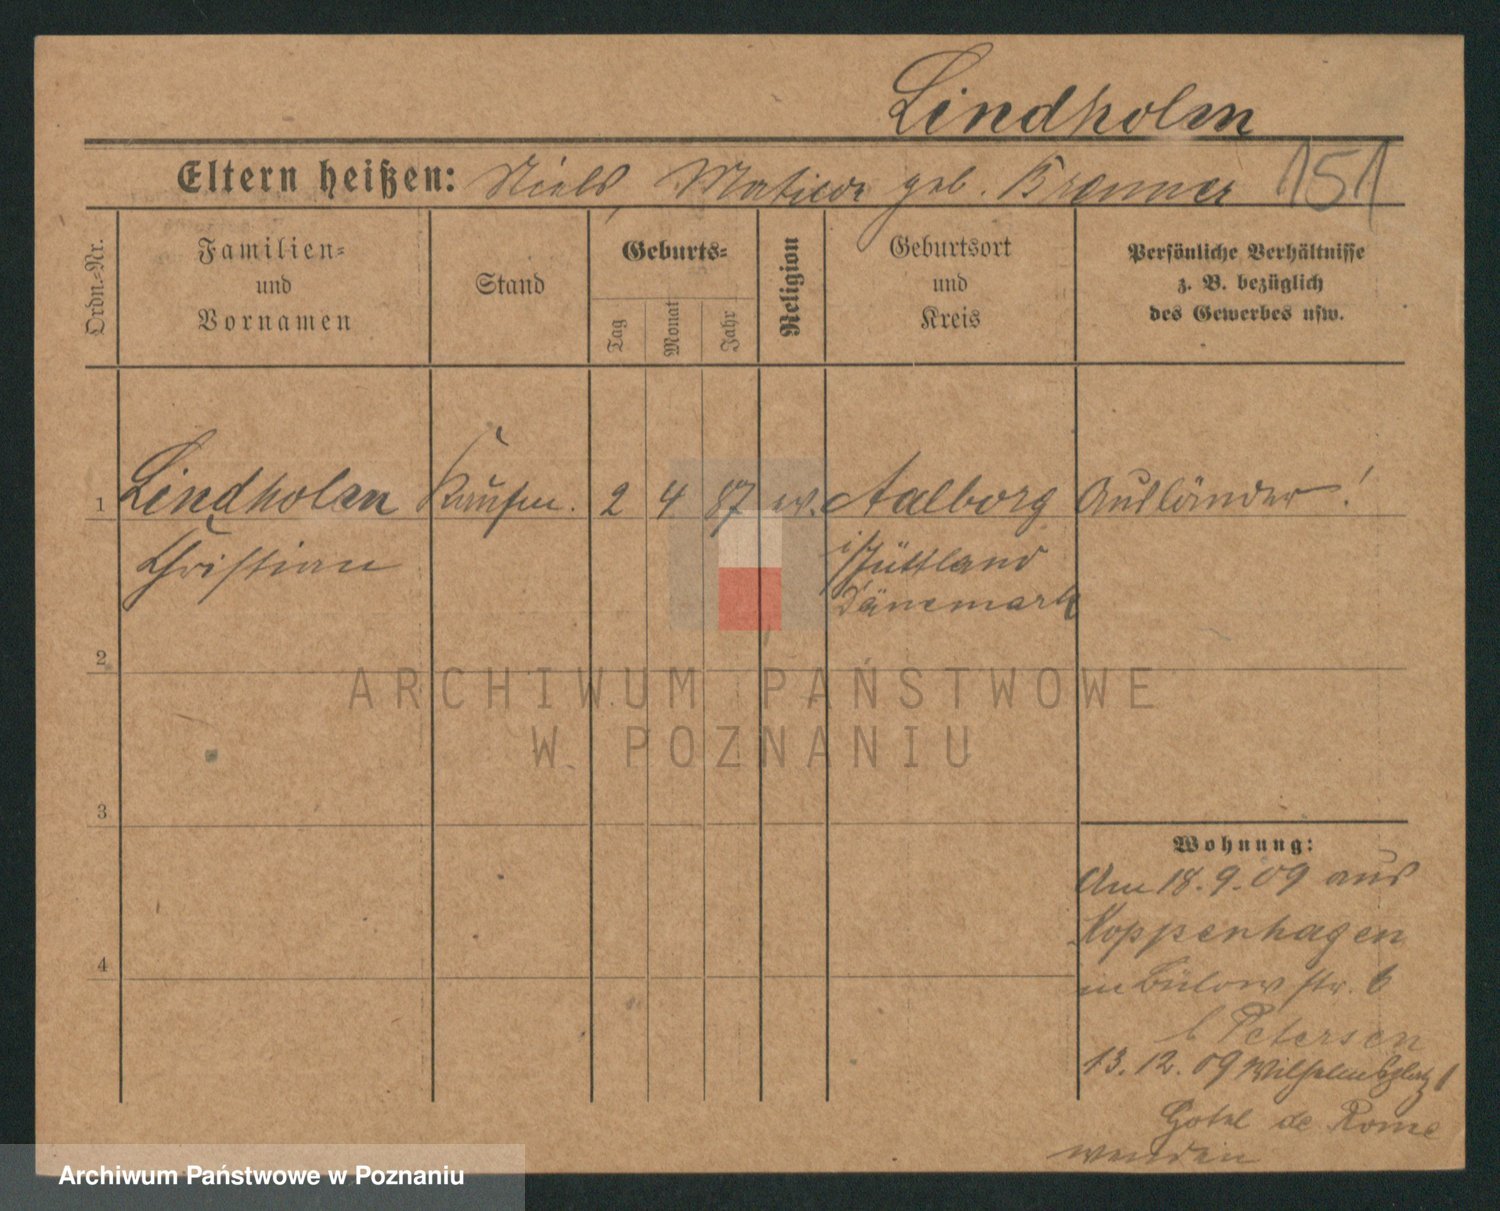 Lindholm
Eltern heißen: Niels, Matilde geb. Brenner 151
Ordn.-Nr.
Familien- und Vornamen
Stand
Geburts-
Tag
Monat
Jahr
Religion
Geburtsort und Kreis
Persönliche Verhältnisse
z. B. bezüglich
des Gewerbes usw.
1 Lindholm Kaufm. 2 4 87 ev. Aalborg Ausländer!
Christian i/Jüttland
Dänemark
2
ARCHIWUM PAŃSTWOWE
W POZNANIU
3
Wohnung:
Am 18.9.09 aus
Koppenhagen
in Bülowstr. 6
b Petersen
4
13.12.09 Wilhelmsplatz 1
Hotel de Rome
wenden
Archiwum Państwowe w Poznaniu